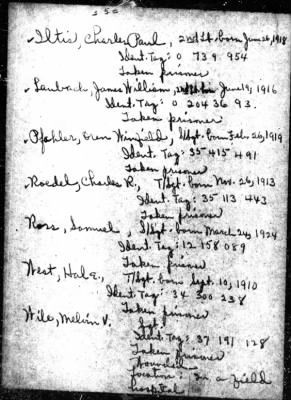 - 5 -
Iltis, Charles Paul, 2nd Lt. born June 26, 1918
Ident. Tag: 0 739 954
Taken prisoner
Laubach James William, born June 19, 1916
Ident. Tag: 0 204 36 93.
Taken prisoner
Pfohler, Oren Winfield, S/Sgt. born Feb. 26, 1919
Ident. Tag: 35 415 491
Taken prisoner
Roedel, Charles R., T/Sgt. born Nov. 26, 1913
Ident. Tag: 35 113 443
Taken prisoner
Ross, Samuel, S/Sgt. born March 24, 1924
Ident. Tag: 12 158 089
Taken prisoner
West, Hal E., T/Sgt. born Sept. 10, 1910
Ident Tag: 34 300 238
Taken prisoner
Wile, Melvin V. Sgt.
Ident. Tag: 37 191 128
Taken prisoner
Wounded
Location: In a field
hospital